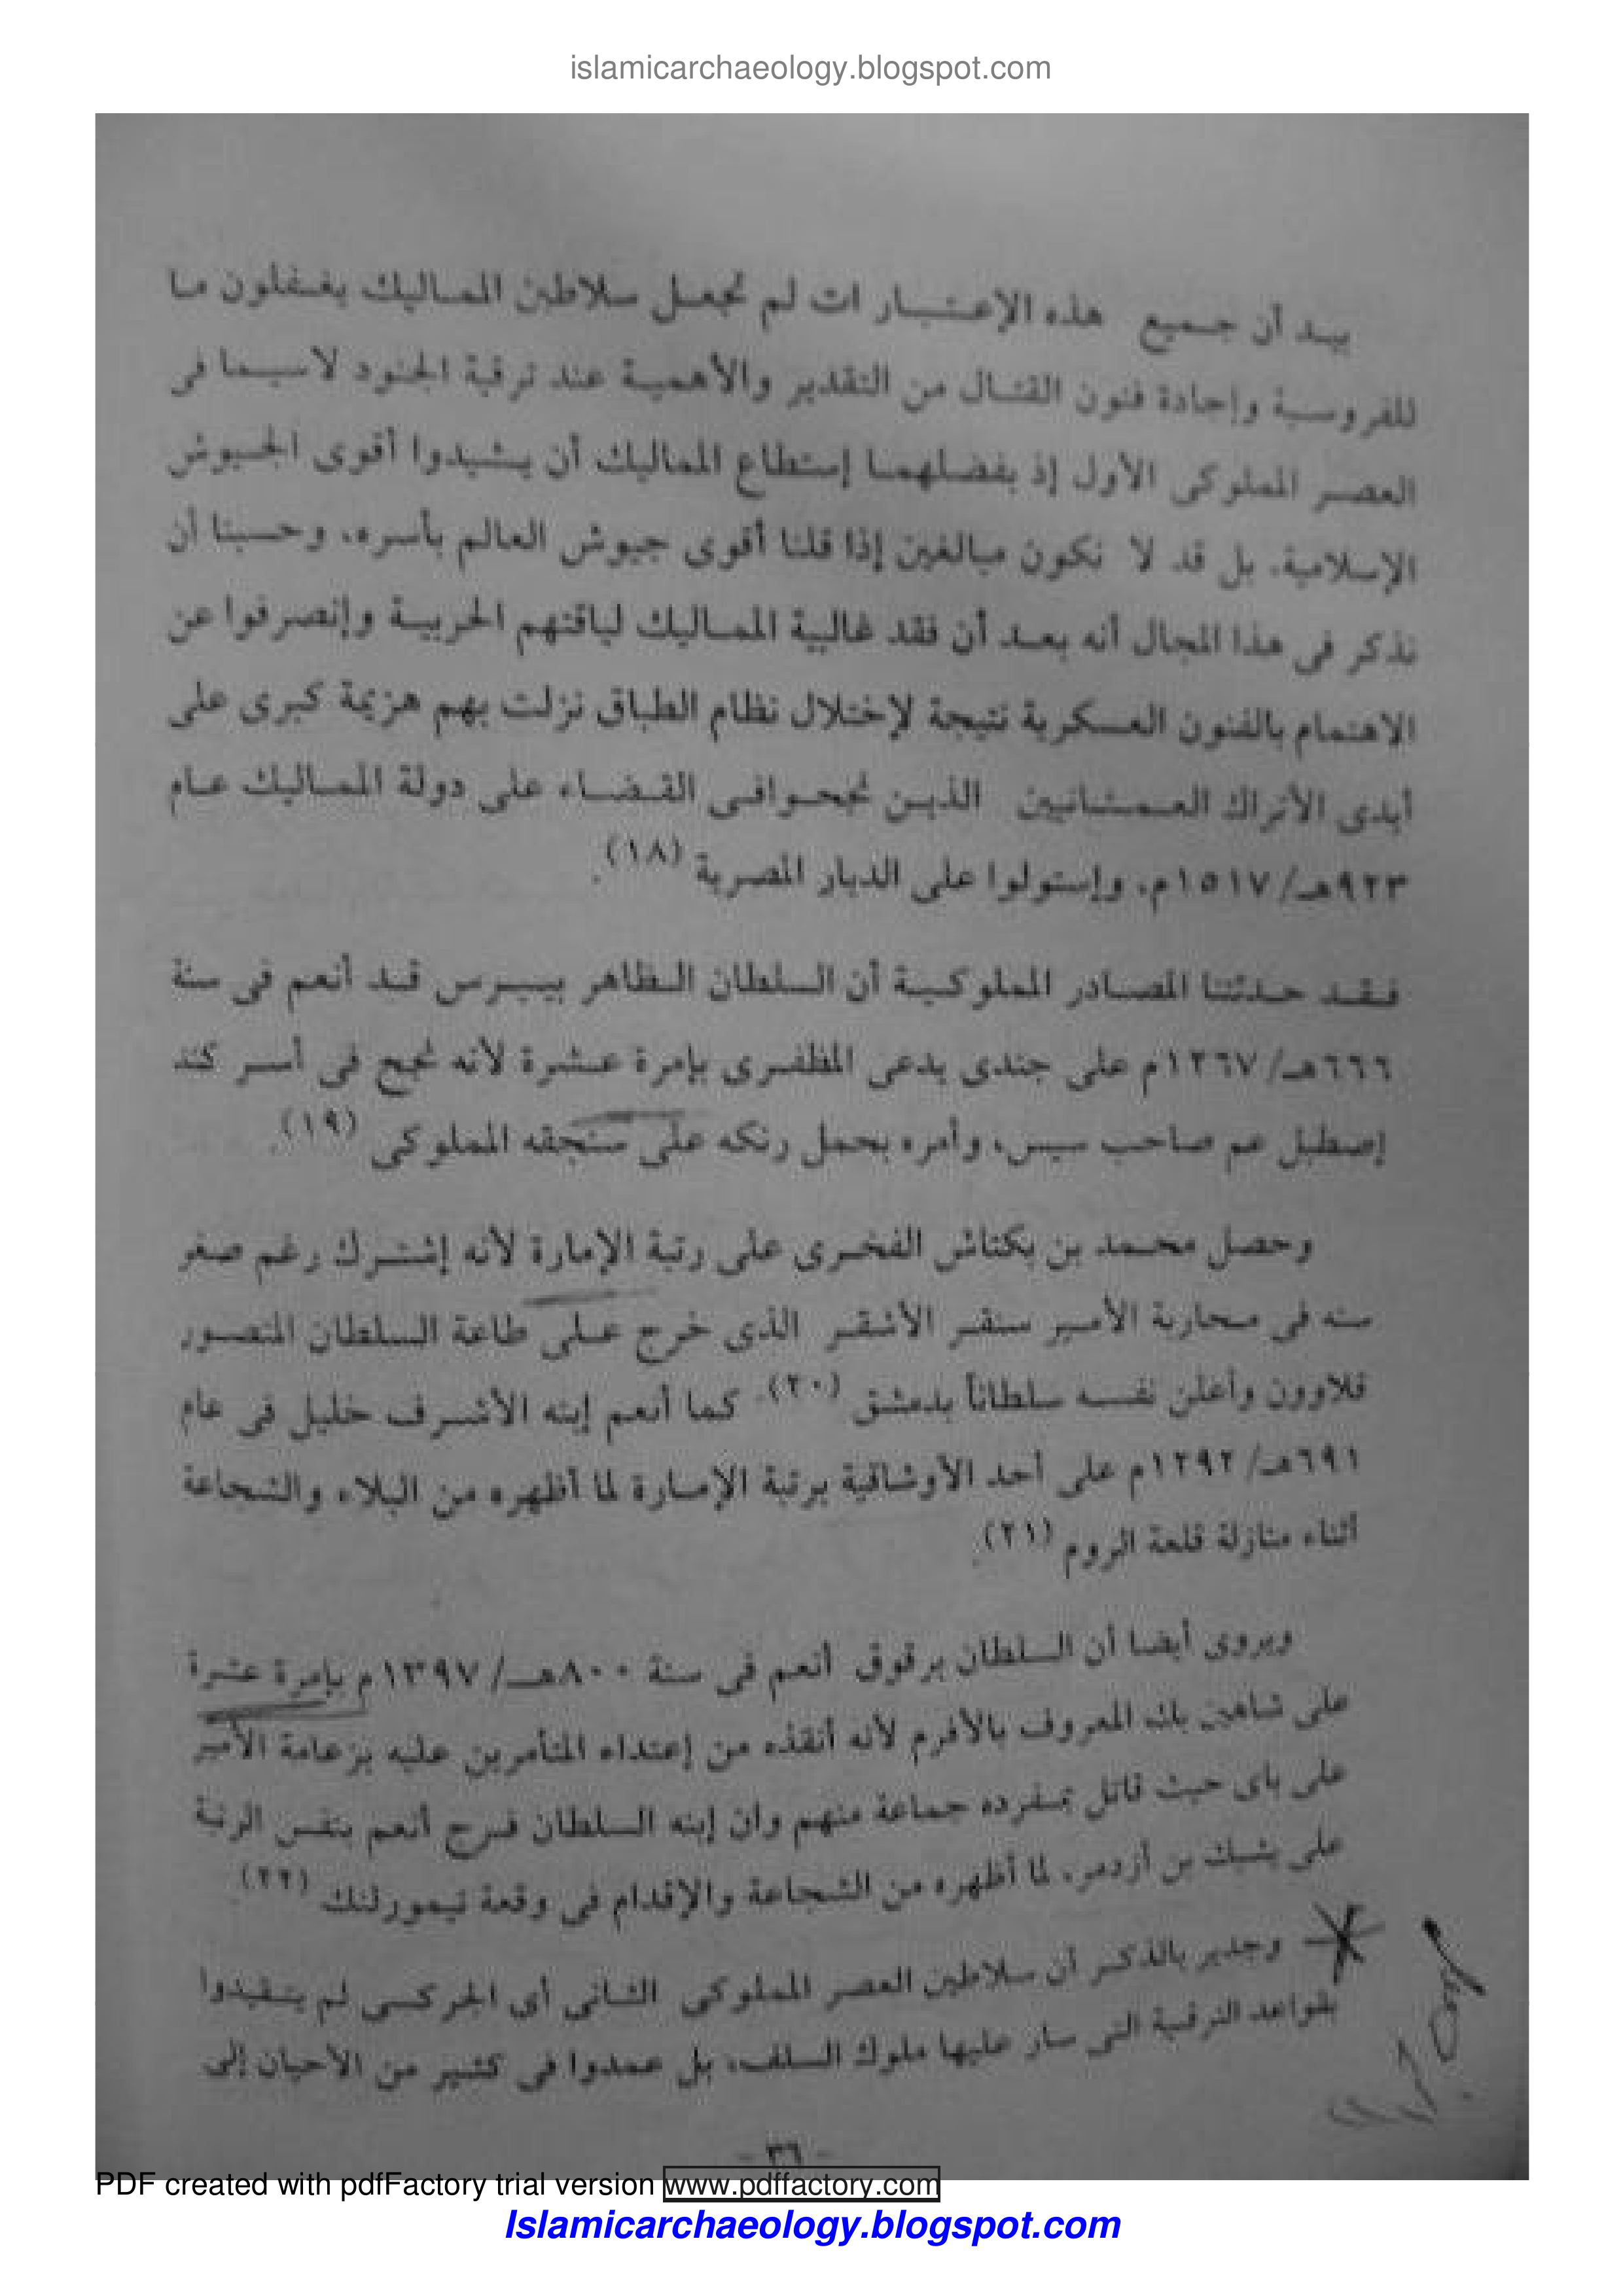 islamicarchaeology.blogspot.com
بيد أن جميع هذه الإعتبارات لم تجعل سلاطين المماليك يغفلون ما
للفروسية وإجادة فنون القتال من التقدير والأهمية عند ترقية الجنود لاسيما فى
العصر المملوكى الأول إذ بفضلهما إستطاع المماليك أن يشيدوا أقوى الجيوش
الإسلامية، بل قد لا نكون مبالغين إذا قلنا أقوى جيوش العالم بأسره، وحسبنا أن
نذكر فى هذا المجال أنه بعد أن فقد غالبية المماليك لياقتهم الحربية وإنصرفوا عن
الاهتمام بالفنون العسكرية نتيجة لإختلال نظام الطباق نزلت بهم هزيمة كبرى على
أيدى الأتراك العثمانيين الذين نجحوافى القضاء على دولة المماليك عام
٩٢٣هـ/ ١٥١٧م، وإستولوا على الديار المصرية (١٨).
فقد حدثتنا المصادر المملوكية أن السلطان الظاهر بيبرس قد أنعم فى سنة
٦٦٦هـ/ ١٢٦٧م على جندى يدعى المظفرى بإمرة عشرة لأنه نجح فى أسر كند
إصطبل عم صاحب سيس، وأمره بحمل رنكه على سنجقه المملوكى (١٩).
وحصل محمد بن بكتاش الفخرى على رتبة الإمارة لأنه إشترك رغم صغر
سنه فى محاربة الأمير سنقر الأشقر الذى خرج على طاعة السلطان المنصور
قلاوون وأعلن نفسه سلطاناً بدمشق (٢٠). كما أنعم إبنه الأشرف خليل فى عام
٦٩١هـ/ ١٢٩٢م على أحد الأوشاقية برتبة الإمارة لما أظهره من البلاء والشجاعة
أثناء منازلة قلعة الروم (٢١).
ويروى أيضا أن السلطان برقوق أنعم فى سنة ٨٠٠هـ/ ١٣٩٧م بإمرة عشرة
على شاهين بك المعروف بالأفرم لأنه أنقذه من إعتداء المتأمرين عليه بزعامة الأمير
على باى حيث قاتل بمفرده جماعة منهم وان إبنه السلطان فرج أنعم بنفس الرتبة
على يشبك بن أزدمر، لما أظهره من الشجاعة والإقدام فى وقعة تيمورلنك (٢٢).
وجدير بالذكر أن سلاطين العصر المملوكى الثانى أى الجركسى لم يتقيدوا
بقواعد الترقية التى سار عليها ملوك السلف، بل عمدوا فى كثير من الأحيان إلى
- ٣٦ -
PDF created with pdfFactory trial version www.pdffactory.com
Islamicarchaeology.blogspot.com